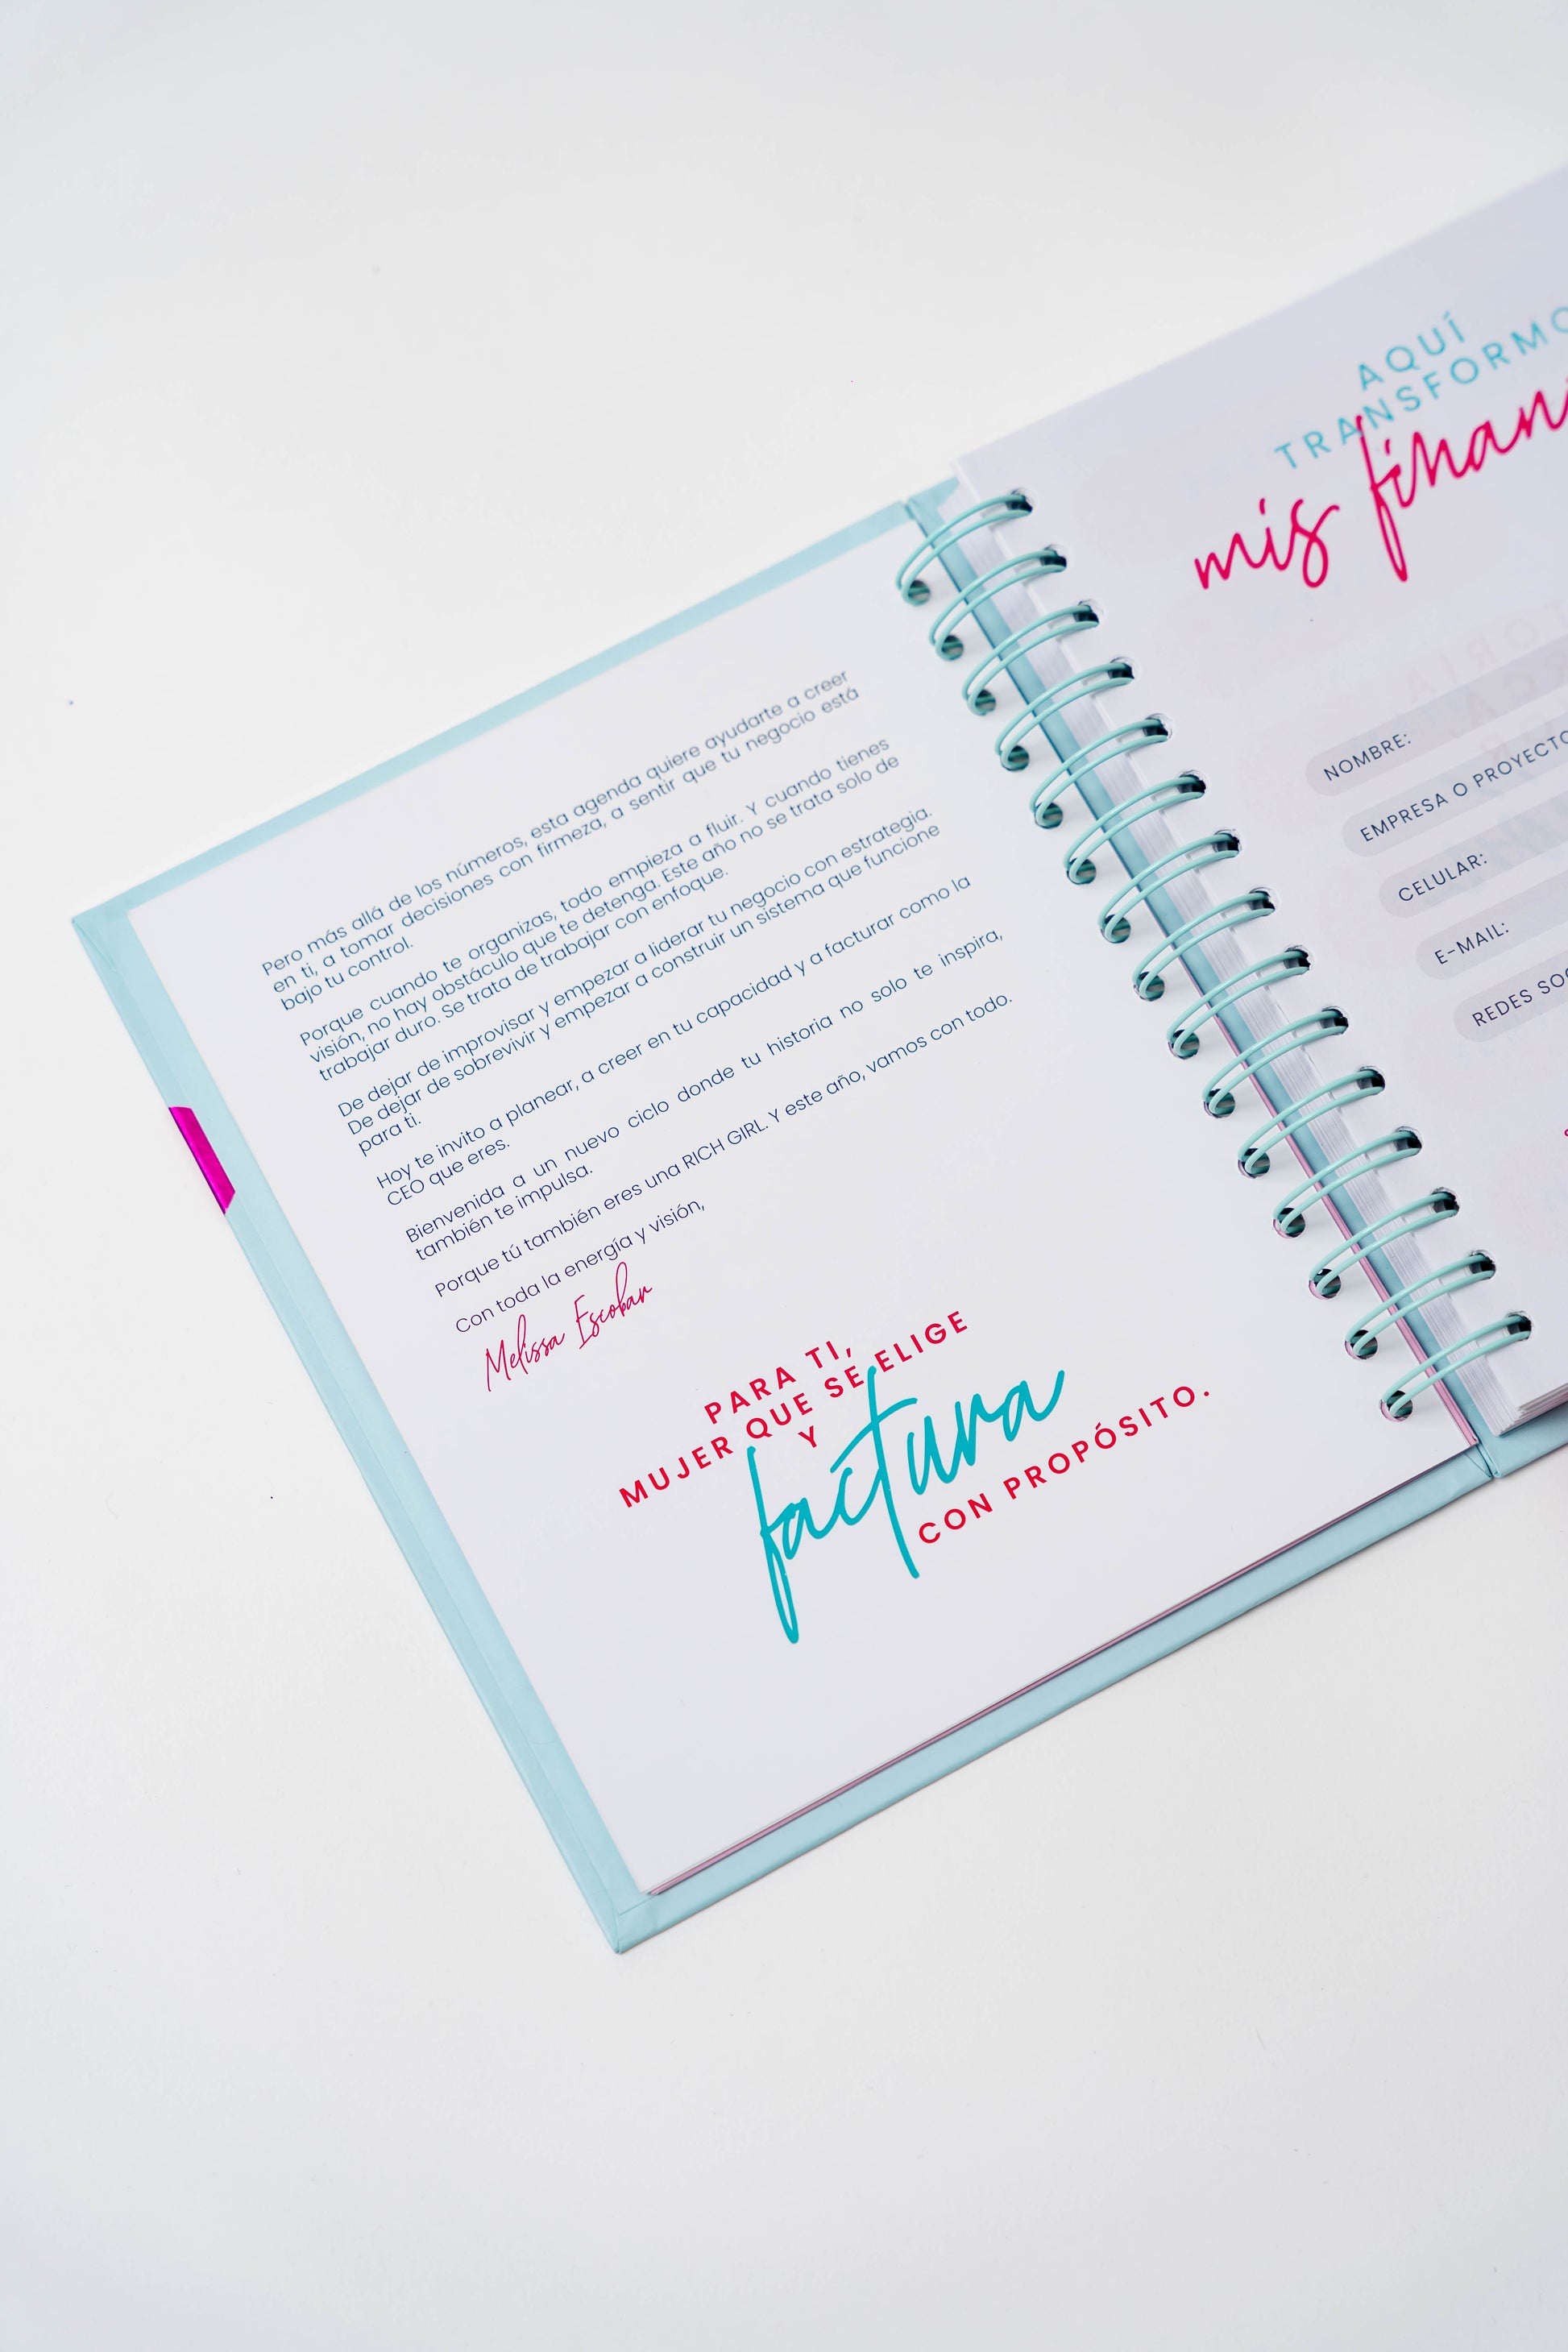 Pero más allá de los números, esta agenda quiere ayudarte a creer
en ti, a tomar decisiones con firmeza, a sentir que tu negocio está
bajo tu control.
Porque cuando te organizas, todo empieza a fluir. Y cuando tienes
visión, no hay obstáculo que te detenga. Este año no se trata solo de
trabajar duro. Se trata de trabajar con enfoque.
De dejar de improvisar y empezar a liderar tu negocio con estrategia.
De dejar de sobrevivir y empezar a construir un sistema que funcione
para ti.
Hoy te invito a planear, a creer en tu capacidad y a facturar como la
CEO que eres.
Bienvenida a un nuevo ciclo donde tu historia no solo te inspira,
también te impulsa.
Porque tú también eres una RICH GIRL. Y este año, vamos con todo.
Con toda la energía y visión,
Melissa Escobar
PARA TI,
MUJER QUE SE ELIGE
Y
factura
CON PROPÓSITO.
AQUÍ
TRANSFORMO
mis finan
NOMBRE:
EMPRESA O PROYECTO
CELULAR:
E-MAIL:
REDES SOC